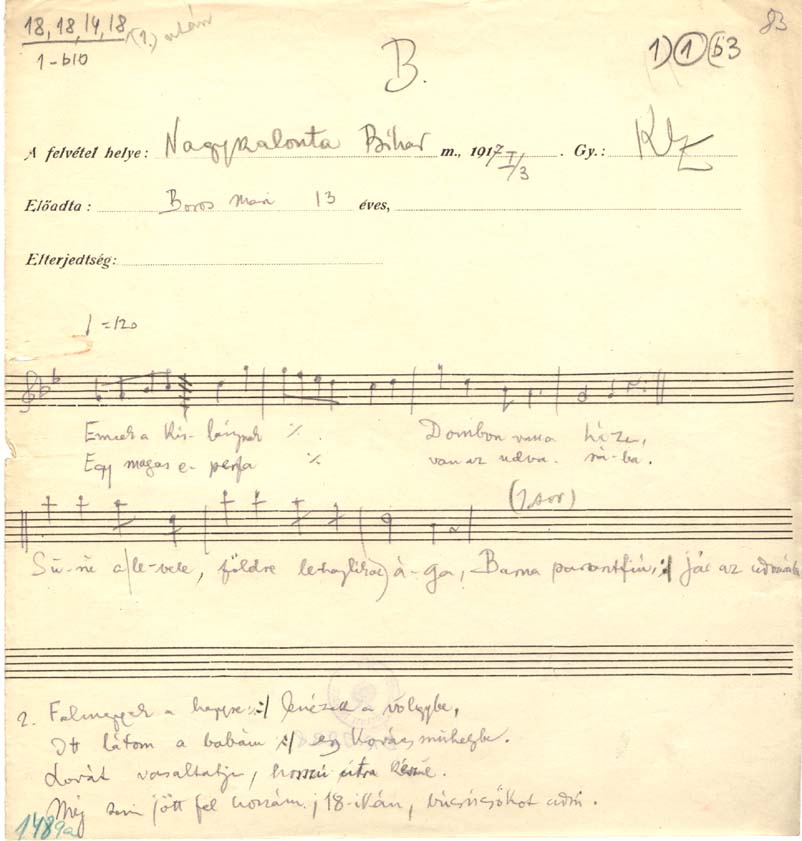 18, 18, 14, 18 (1.) után
1-b10
B.
1) 1 b3
83
A felvétel helye: Nagyszalonta Bihar m., 1917 I/3. Gy.: KZ
Előadta: Boros Mari 13 éves,
Elterjedtség:
=120
Ennek a kis- lánynak ٪ Dombon van a háza,
Egy magas e- perfa ٪ van az udva- rá-ba.
(1 sor)
Sű-rű a le-vele, földre lehajlik az á-ga, Barna parasztfiú :/ jár az udvarába
2. Felmegyek a hegyre :/ lenézek a völgybe,
Ott látom a babám :/ egy kovácsműhelybe.
Lovát vasaltatja, hosszú útra készül.
Még sem jött fel hozzám :/ 18-ikán, búcsúcsókot adni.
1489a